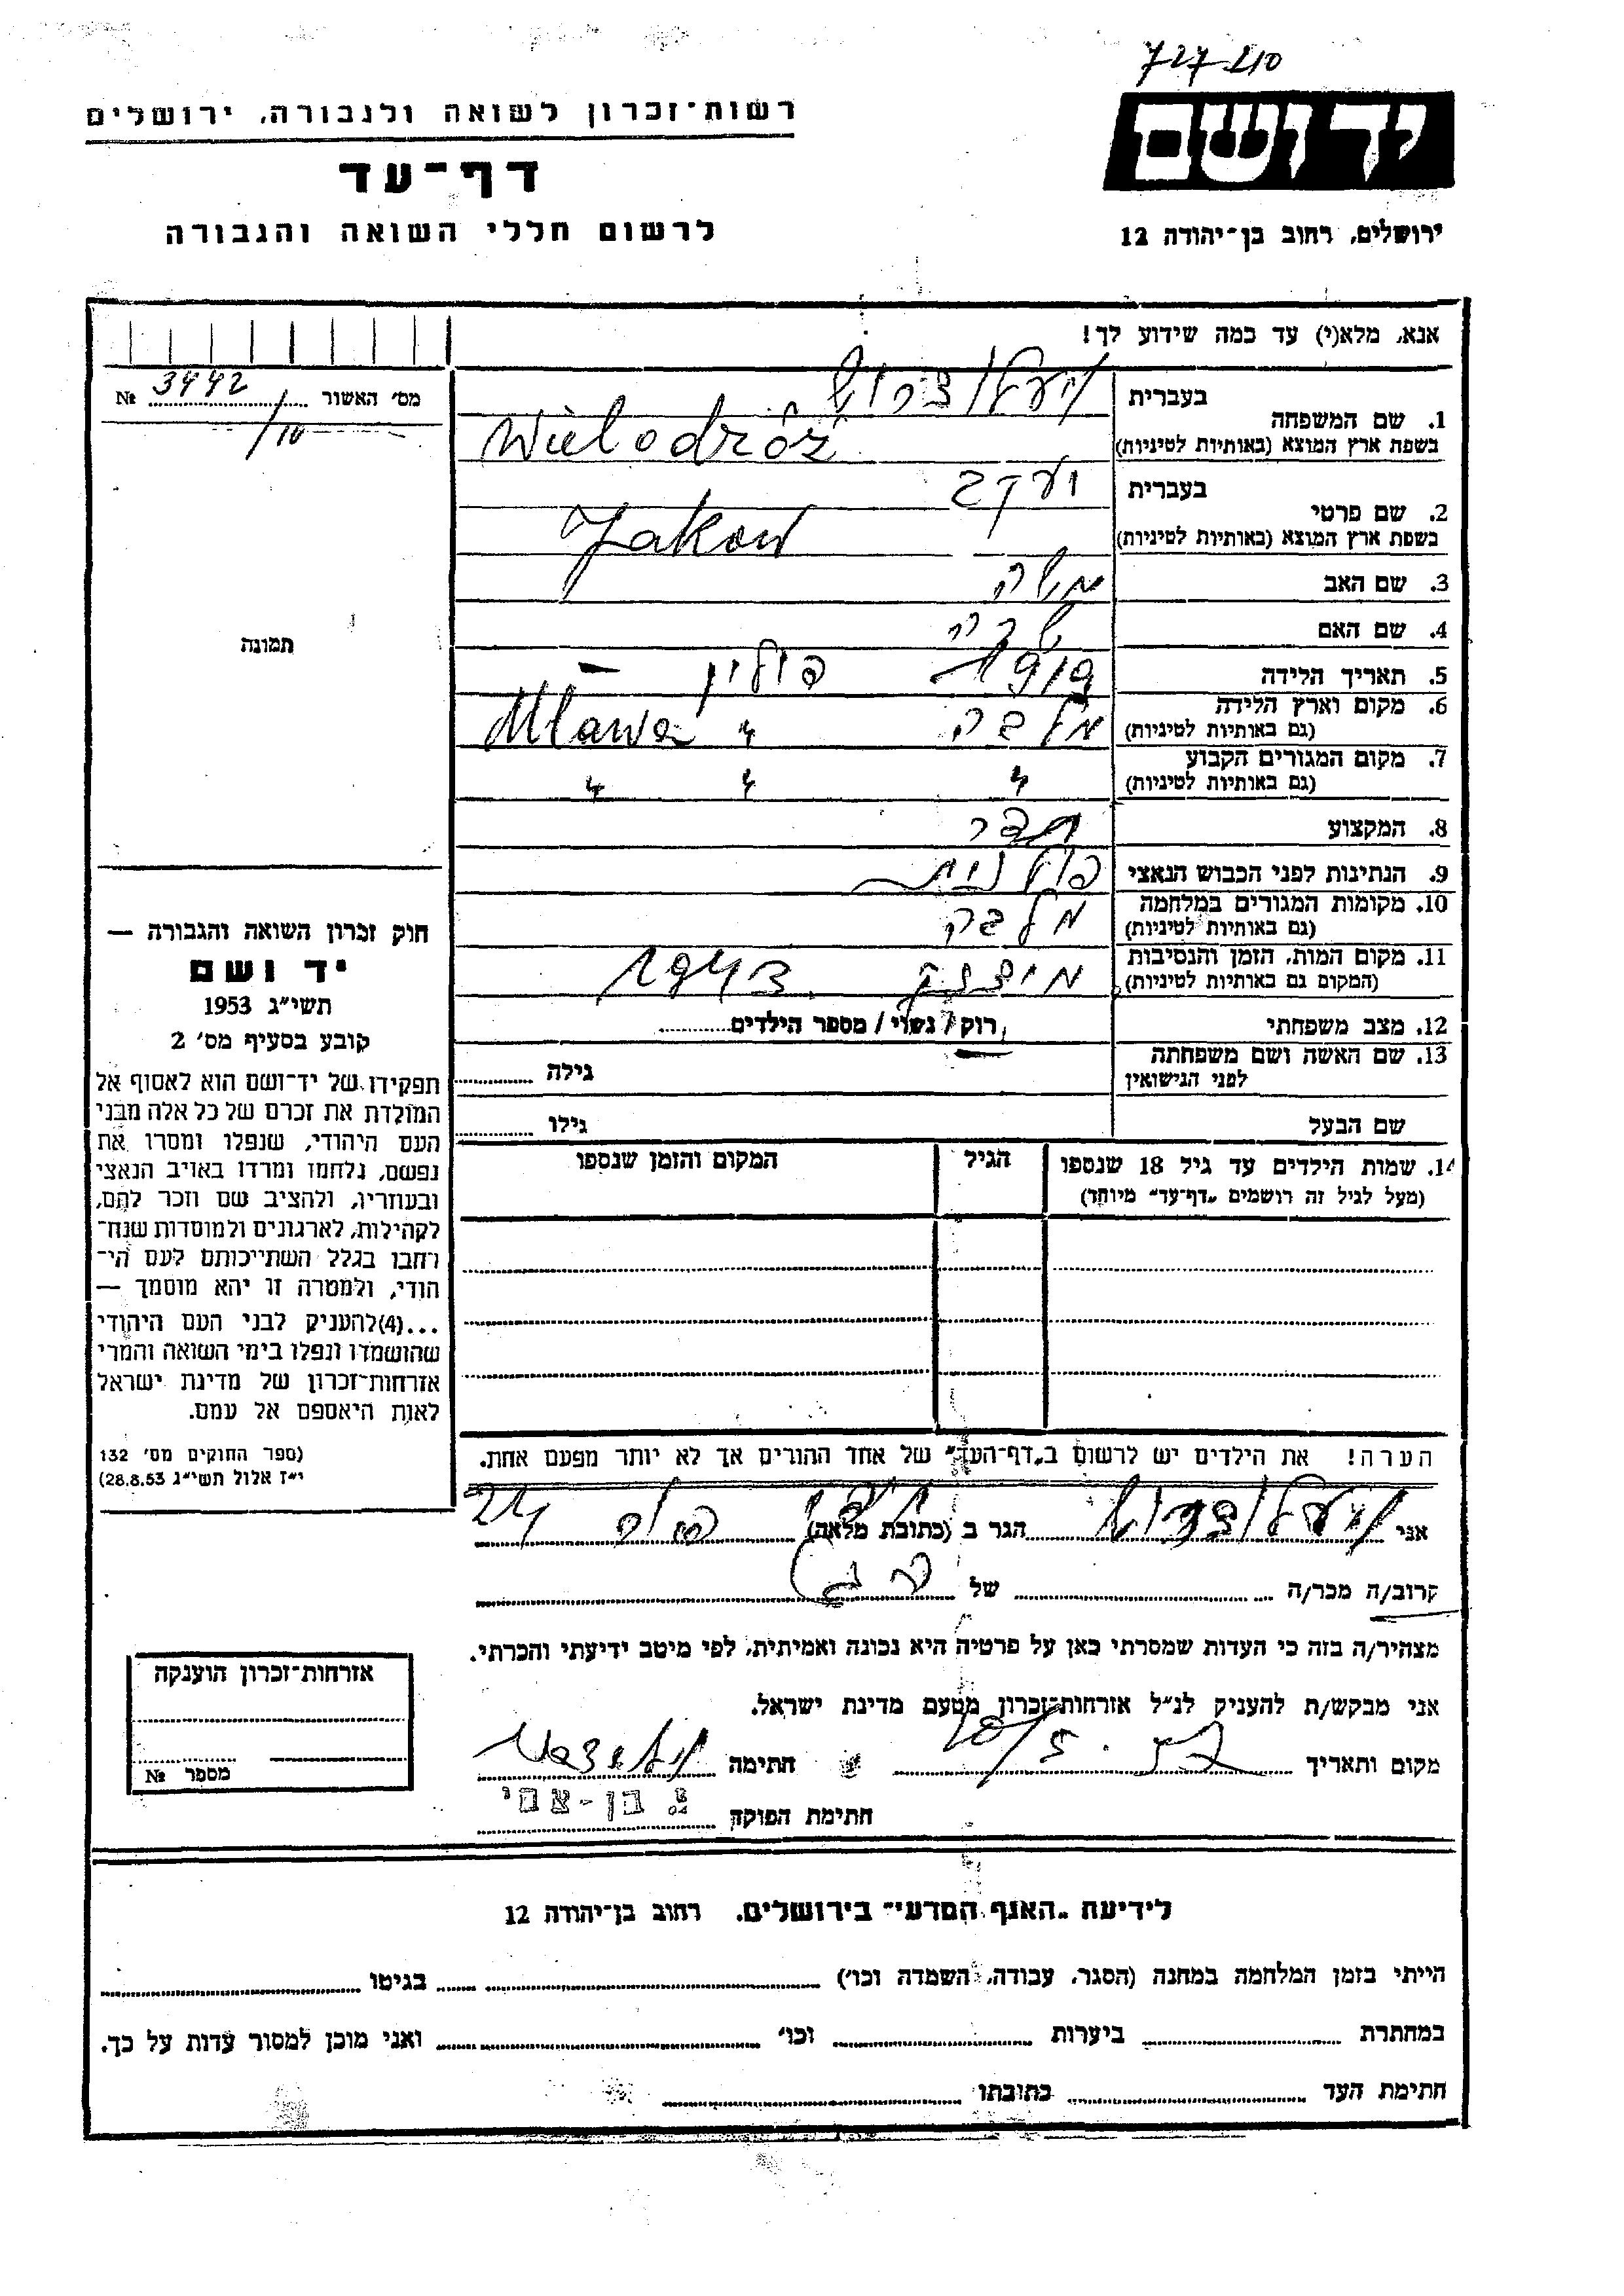 727-210
רשות־זכרון לשואה ולגבורה, ירושלים
יד ושם
דף־עד
לרשום חללי השואה והגבורה
ירושלים, רחוב בן־יהודה 12
אנא, מלא(י) עד כמה שידוע לך!
מס׳ האשור 3442 №
/10
1. שם המשפחה
בעברית
בשפת ארץ המוצא (באותיות לטיניות) Wielodróż
2. שם פרטי
בעברית יעקב
בשפת ארץ המוצא (באותיות לטיניות) Jakow
3. שם האב משה
4. שם האם שרה
5. תאריך הלידה 1919 פולין –
6. מקום וארץ הלידה
(גם באותיות לטיניות) מלבה " Mlawa
7. מקום המגורים הקבוע
(גם באותיות לטיניות) " " "
8. המקצוע
9. הנתינות לפני הכבוש הנאצי פולנית
10. מקומות המגורים במלחמה
(גם באותיות לטיניות) מלבה
11. מקום המות, הזמן והנסיבות
(המקום גם באותיות לטיניות) 1943
12. מצב משפחתי רוק / נשוי / מספר הילדים
13. שם האשה ושם משפחתה
לפני הנישואין גילה
שם הבעל גילו
תמונה
חוק זכרון השואה והגבורה —
יד ושם
תשי״ג 1953
קובע בסעיף מס׳ 2
תפקידו של יד־ושם הוא לאסוף אל
המולדת את זכרם של כל אלה מבני
העם היהודי, שנפלו ומסרו את
נפשם, נלחמו ומרדו באויב הנאצי
ובעוזריו, ולהציב שם וזכר להם,
לקהילות, לארגונים ולמוסדות שנח־
רחבו בגלל השתייכותם לעם הי־
הודי, ולמטרה זו יהא מוסמך —
...(4)להעניק לבני העם היהודי
שהושמדו ונפלו בימי השואה והמרי
אזרחות־זכרון של מדינת ישראל
לאות היאספם אל עמם.
(ספר החוקים מס׳ 132
י״ז אלול תשי״ג 28.8.53)
14. שמות הילדים עד גיל 18 שנספו
(מעל לגיל זה רושמים „דף־עד״ מיוחד)
הגיל
המקום והזמן שנספו
הערה! את הילדים יש לרשום ב„דף־העד״ של אחד ההורים אך לא יותר מפעם אחת.
אני הגר ב (כתובת מלאה) 24
קרוב/ה מכר/ה של
מצהיר/ה בזה כי העדות שמסרתי כאן על פרטיה היא נכונה ואמיתית, לפי מיטב ידיעתי והכרתי.
אני מבקש/ת להעניק לנ״ל אזרחות־זכרון מטעם מדינת ישראל.
מקום ותאריך חתימה
חתימת הפוקד
אזרחות־זכרון הוענקה
מספר №
לידיעת „האגף המדעי״ בירושלים, רחוב בן־יהודה 12
הייתי בזמן המלחמה במחנה (הסגר, עבודה, השמדה וכו׳) בגיטו
במחתרת ביערות וכו׳ ואני מוכן למסור עדות על כך.
חתימת העד כתובתו